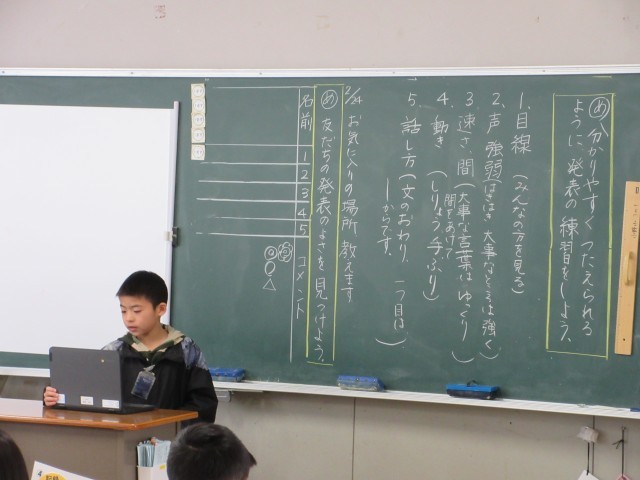 め 分かりやすくつたえられる
ように、発表の練習をしよう。
1. 目線 (みんなの方を見る)
2. 声 強弱 (はきはき 大事なところは強く)
3. 速さ、間 (大事な言葉は ゆっくり
間をあけて)
4. 動き (しりょう 手ぶり)
5. 話し方 (文のおわり、 一つ目は、
〜からです。)
2/24 お気に入りの場所 教えます
め 友だちの発表のよさを見つけよう。
名前 1 2 3 4 5 コメント
◎ ○ △